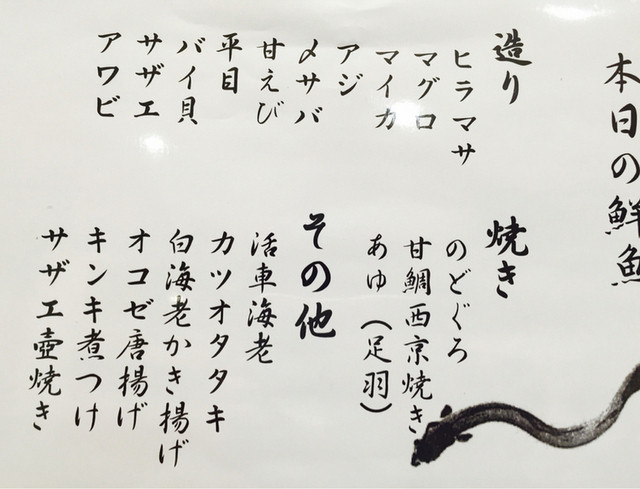 本日の鮮魚
造り
ヒラマサ
マグロ
マイカ
アジ
〆サバ
甘えび
平目
バイ貝
サザエ
アワビ
焼き
のどぐろ
甘鯛西京焼き
あゆ（足羽）
その他
活車海老
カツオタタキ
白海老かき揚げ
オコゼ唐揚げ
キンキ煮つけ
サザエ壺焼き